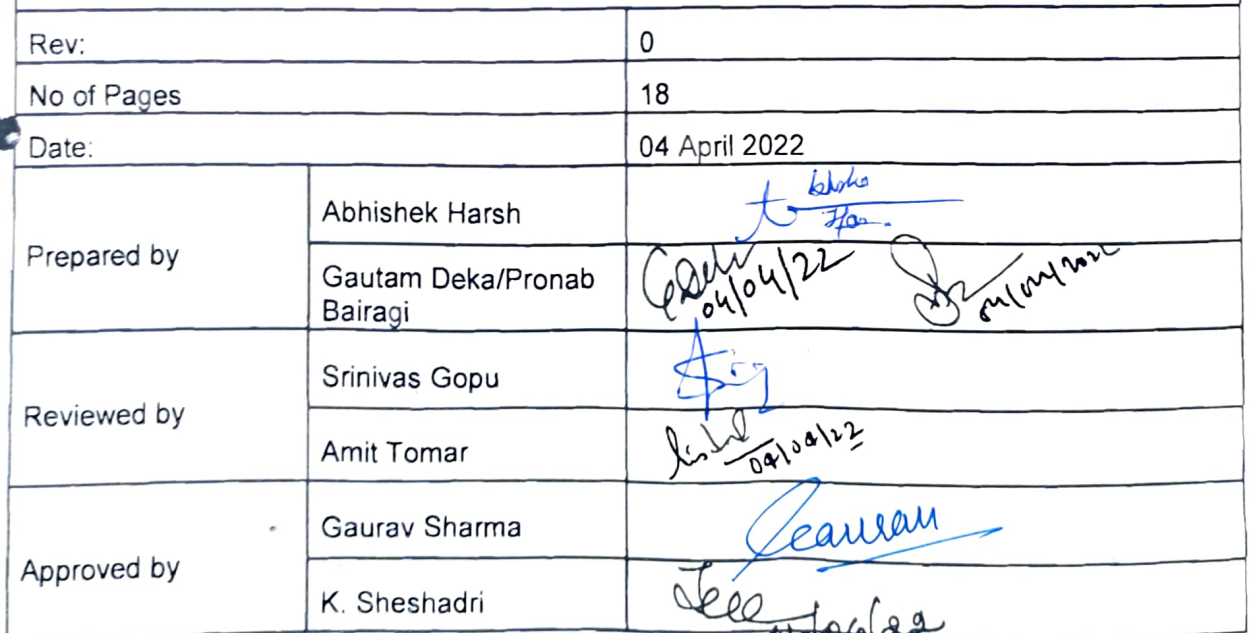 Rev: 0
No of Pages 18
Date: 04 April 2022
Prepared by
Abhishek Harsh
Gautam Deka/Pronab
Bairagi
04/04/22 04/04/2022
Reviewed by
Srinivas Gopu
Amit Tomar
04/04/22
Approved by
Gaurav Sharma Gaurav
K. Sheshadri